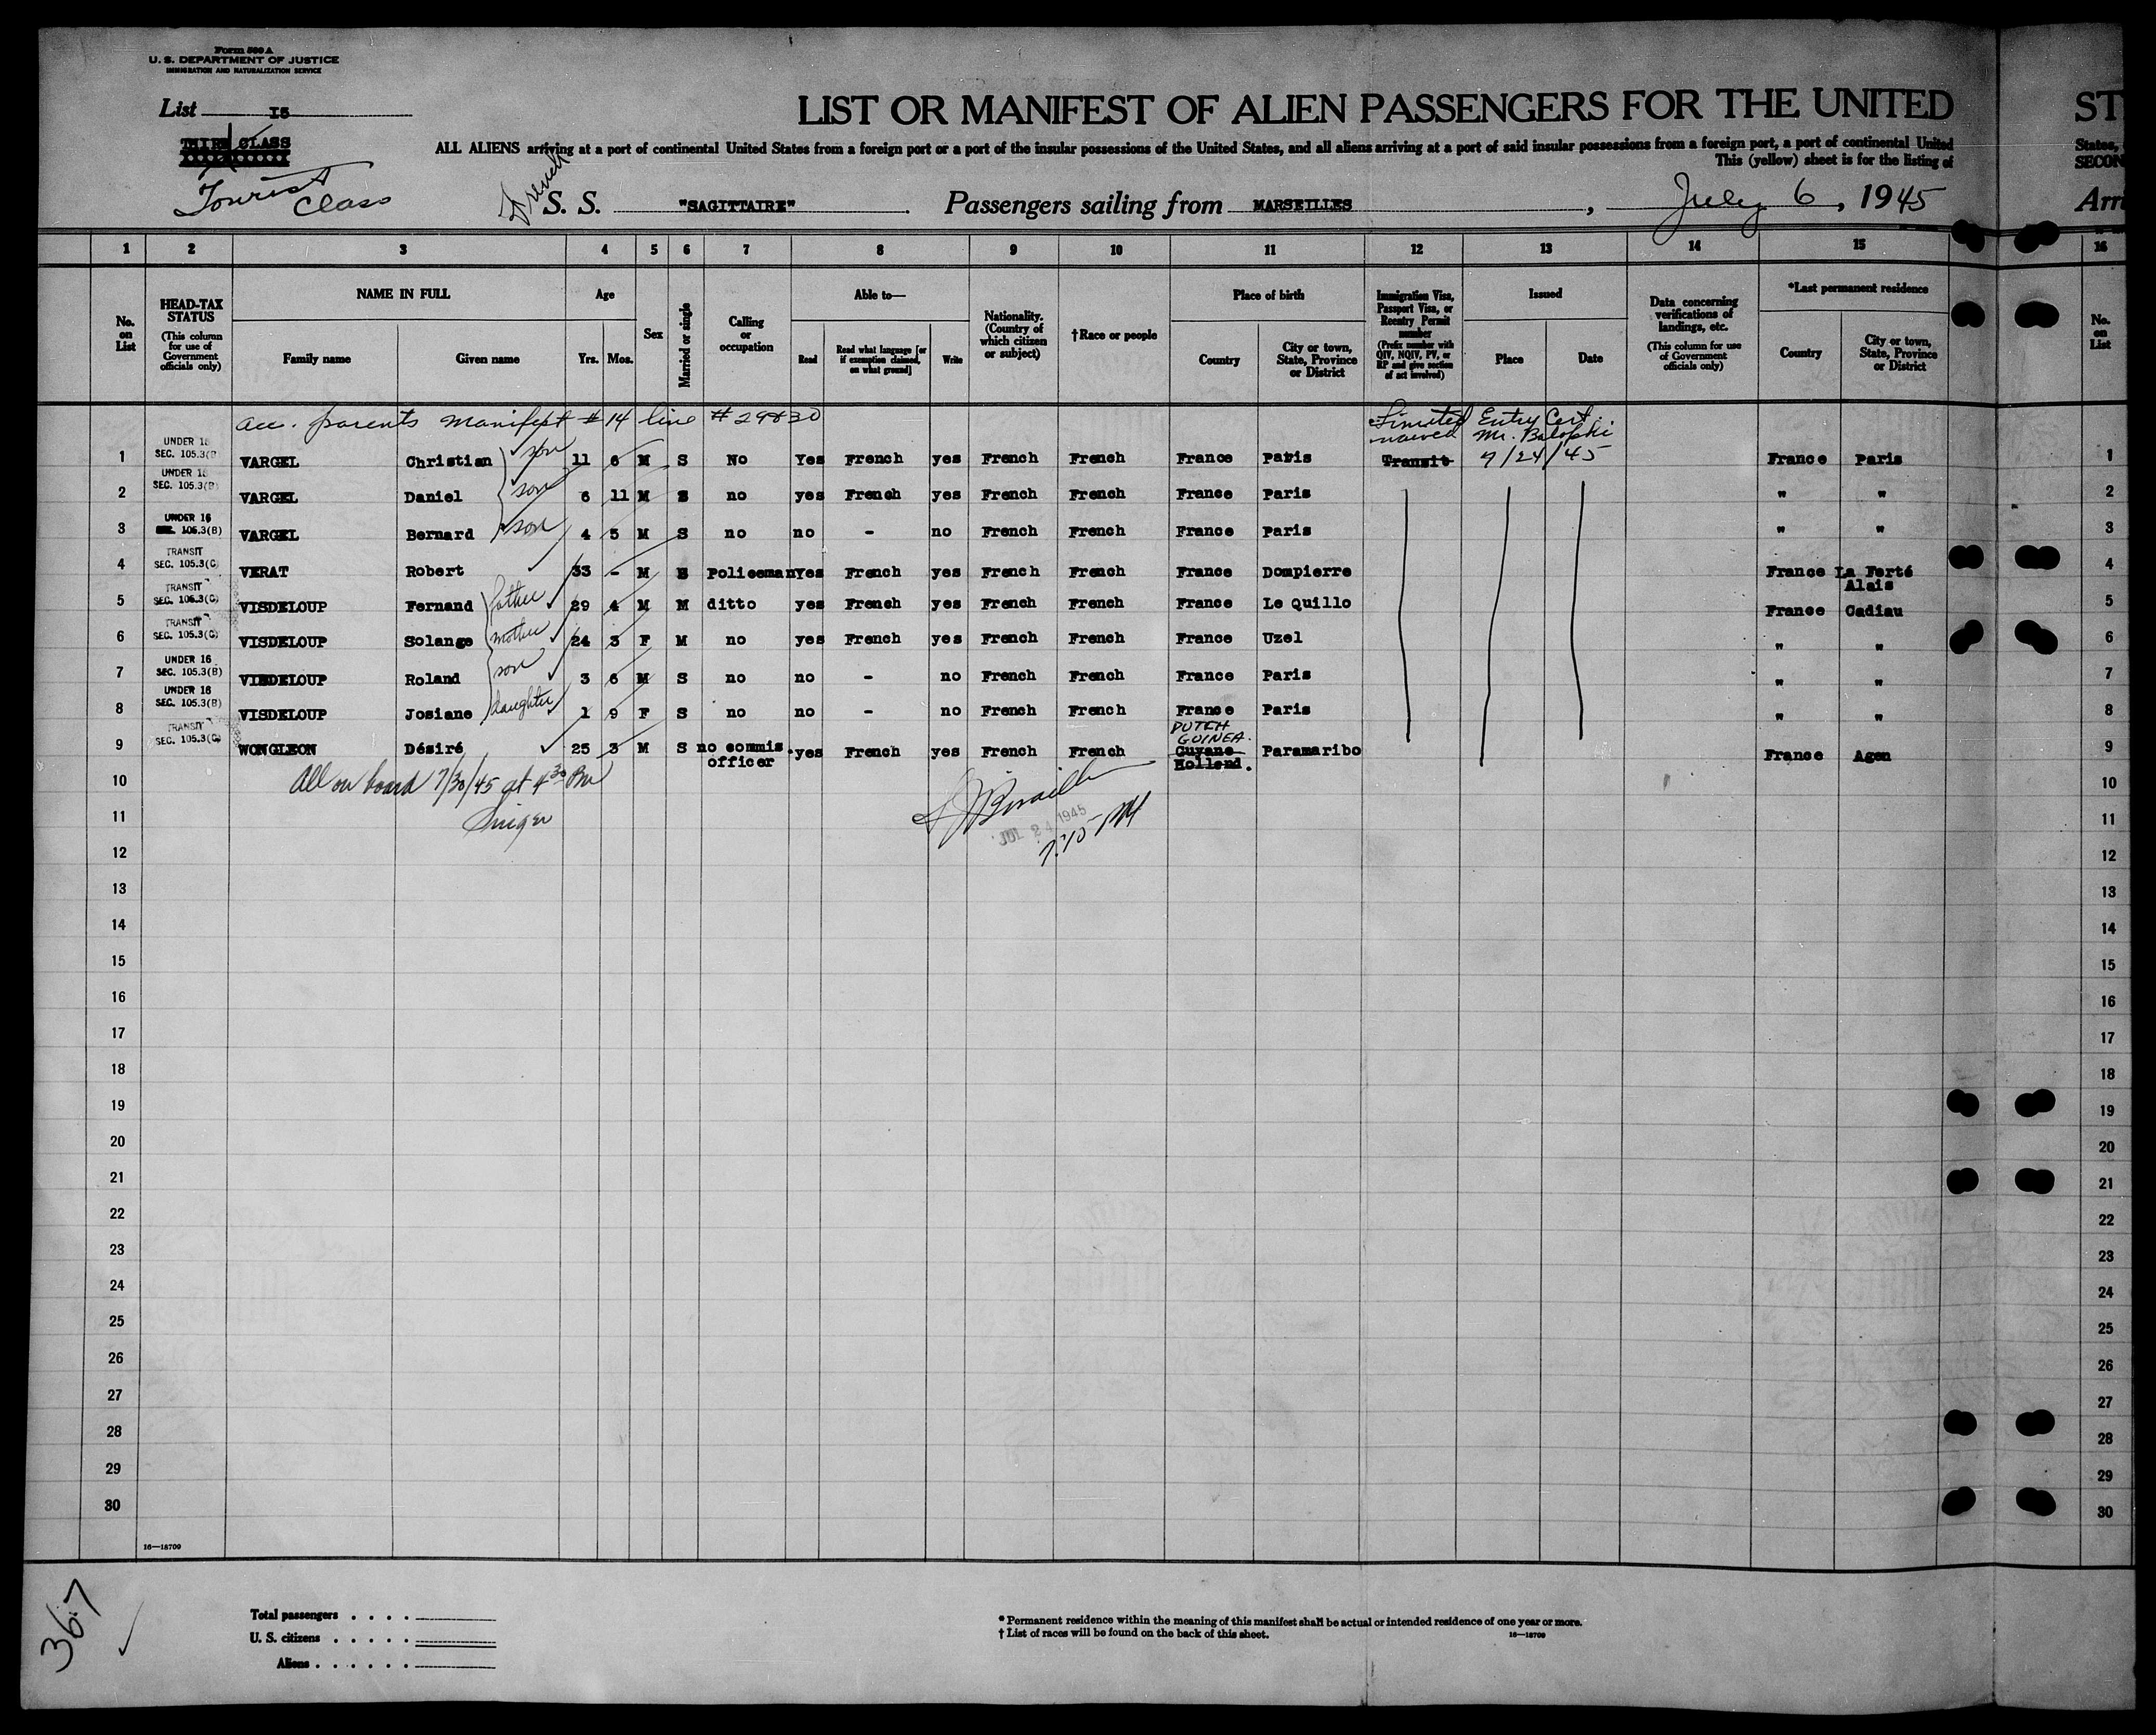 Form 500 A
U. S. DEPARTMENT OF JUSTICE
IMMIGRATION AND NATURALIZATION SERVICE
List 15
THIRD CLASS
Tourist Class
LIST OR MANIFEST OF ALIEN PASSENGERS FOR THE UNITED ST
ALL ALIENS arriving at a port of continental United States from a foreign port or a port of the insular possessions of the United States, and all aliens arriving at a port of said insular possessions from a foreign port, a port of continental United States,
This (yellow) sheet is for the listing of SECON
French S. S. "SAGITTAIRE". Passengers sailing from MARSEILLES, July 6, 1945 Arri
1 2 3 4 5 6 7 8 9 10 11 12 13 14 15 16
No. on List
HEAD-TAX STATUS (This column for use of Government officials only)
NAME IN FULL Family name Given name
Age Yrs. Mos.
Sex
Married or single
Calling or occupation
Able to— Read Read what language [or if exemption claimed, on what ground] Write
Nationality. (Country of which citizen or subject)
†Race or people
Place of birth Country City or town, State, Province or District
Immigration Visa, Passport Visa, or Reentry Permit number (Prefix number with QIV, NQIV, PV, or RP and give section of act involved)
Issued Place Date
Data concerning verifications of landings, etc. (This column for use of Government officials only)
*Last permanent residence Country City or town, State, Province or District
No. on List
acc. parents manifest #14 line #29&30 Limited Entry Cert. waived Mr.
1 UNDER 16 SEC. 105.3(B) VARGEL Christian son 11 6 M S No Yes French yes French French France Paris Transit 7/24/45 France Paris 1
2 UNDER 16 SEC. 105.3(B) VARGEL Daniel son 6 11 M S no yes French yes French French France Paris " " 2
3 UNDER 16 SEC. 105.3(B) VARGEL Bernard son 4 5 M S no no - no French French France Paris " " 3
4 TRANSIT SEC. 105.3(C) VERAT Robert 33 - M S Policeman Yes French yes French French France Dompierre France La Ferté Alais 4
5 TRANSIT SEC. 105.3(C) VISDELOUP Fernand father 29 4 M M ditto yes French yes French French France Le Quillo France Cadiau 5
6 TRANSIT SEC. 105.3(C) VISDELOUP Solange mother 24 3 F M no yes French yes French French France Uzel " " 6
7 UNDER 16 SEC. 105.3(B) VISDELOUP Roland son 3 6 M S no no - no French French France Paris " " 7
8 UNDER 16 SEC. 105.3(B) VISDELOUP Josiane daughter 1 9 F S no no - no French French France Paris " " 8
DUTCH GUINEA.
9 TRANSIT SEC. 105.3(C) WONGLEON Désiré 25 3 M S no commis. officer yes French yes French French Guyane Hollend. Paramaribo France Agen 9
10 All on board 7/30/45 at 4 30 PM 10
11 JUL 24 1945 11
12 7:15 PM 12
13 13
14 14
15 15
16 16
17 17
18 18
19 19
20 20
21 21
22 22
23 23
24 24
25 25
26 26
27 27
28 28
29 29
30 30
16—18709
367
Total passengers . . . .
U. S. citizens . . . . .
Aliens . . . . . .
* Permanent residence within the meaning of this manifest shall be actual or intended residence of one year or more.
† List of races will be found on the back of this sheet. 16—18709